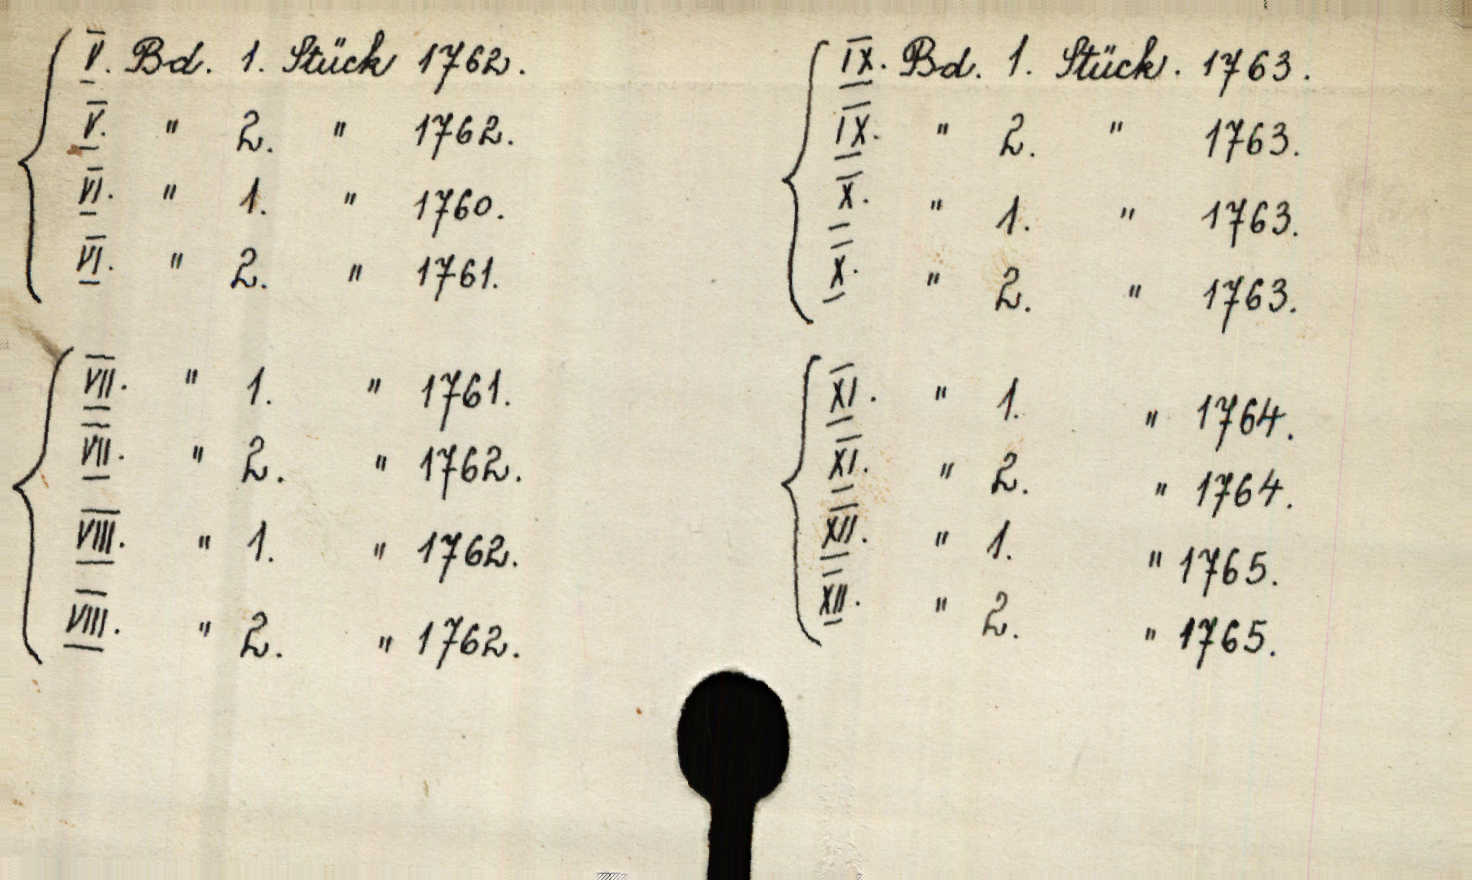 V. Bd. 1. Stück 1762.
V. " 2. " 1762.
VI. " 1. " 1760.
VI. " 2. " 1761.
VII. " 1. " 1761.
VII. " 2. " 1762.
VIII. " 1. " 1762.
VIII. " 2. " 1762.
IX. Bd. 1. Stück. 1763.
IX. " 2. " 1763.
X. " 1. " 1763.
X. " 2. " 1763.
XI. " 1. " 1764.
XI. " 2. " 1764.
XII. " 1. " 1765.
XII. " 2. " 1765.